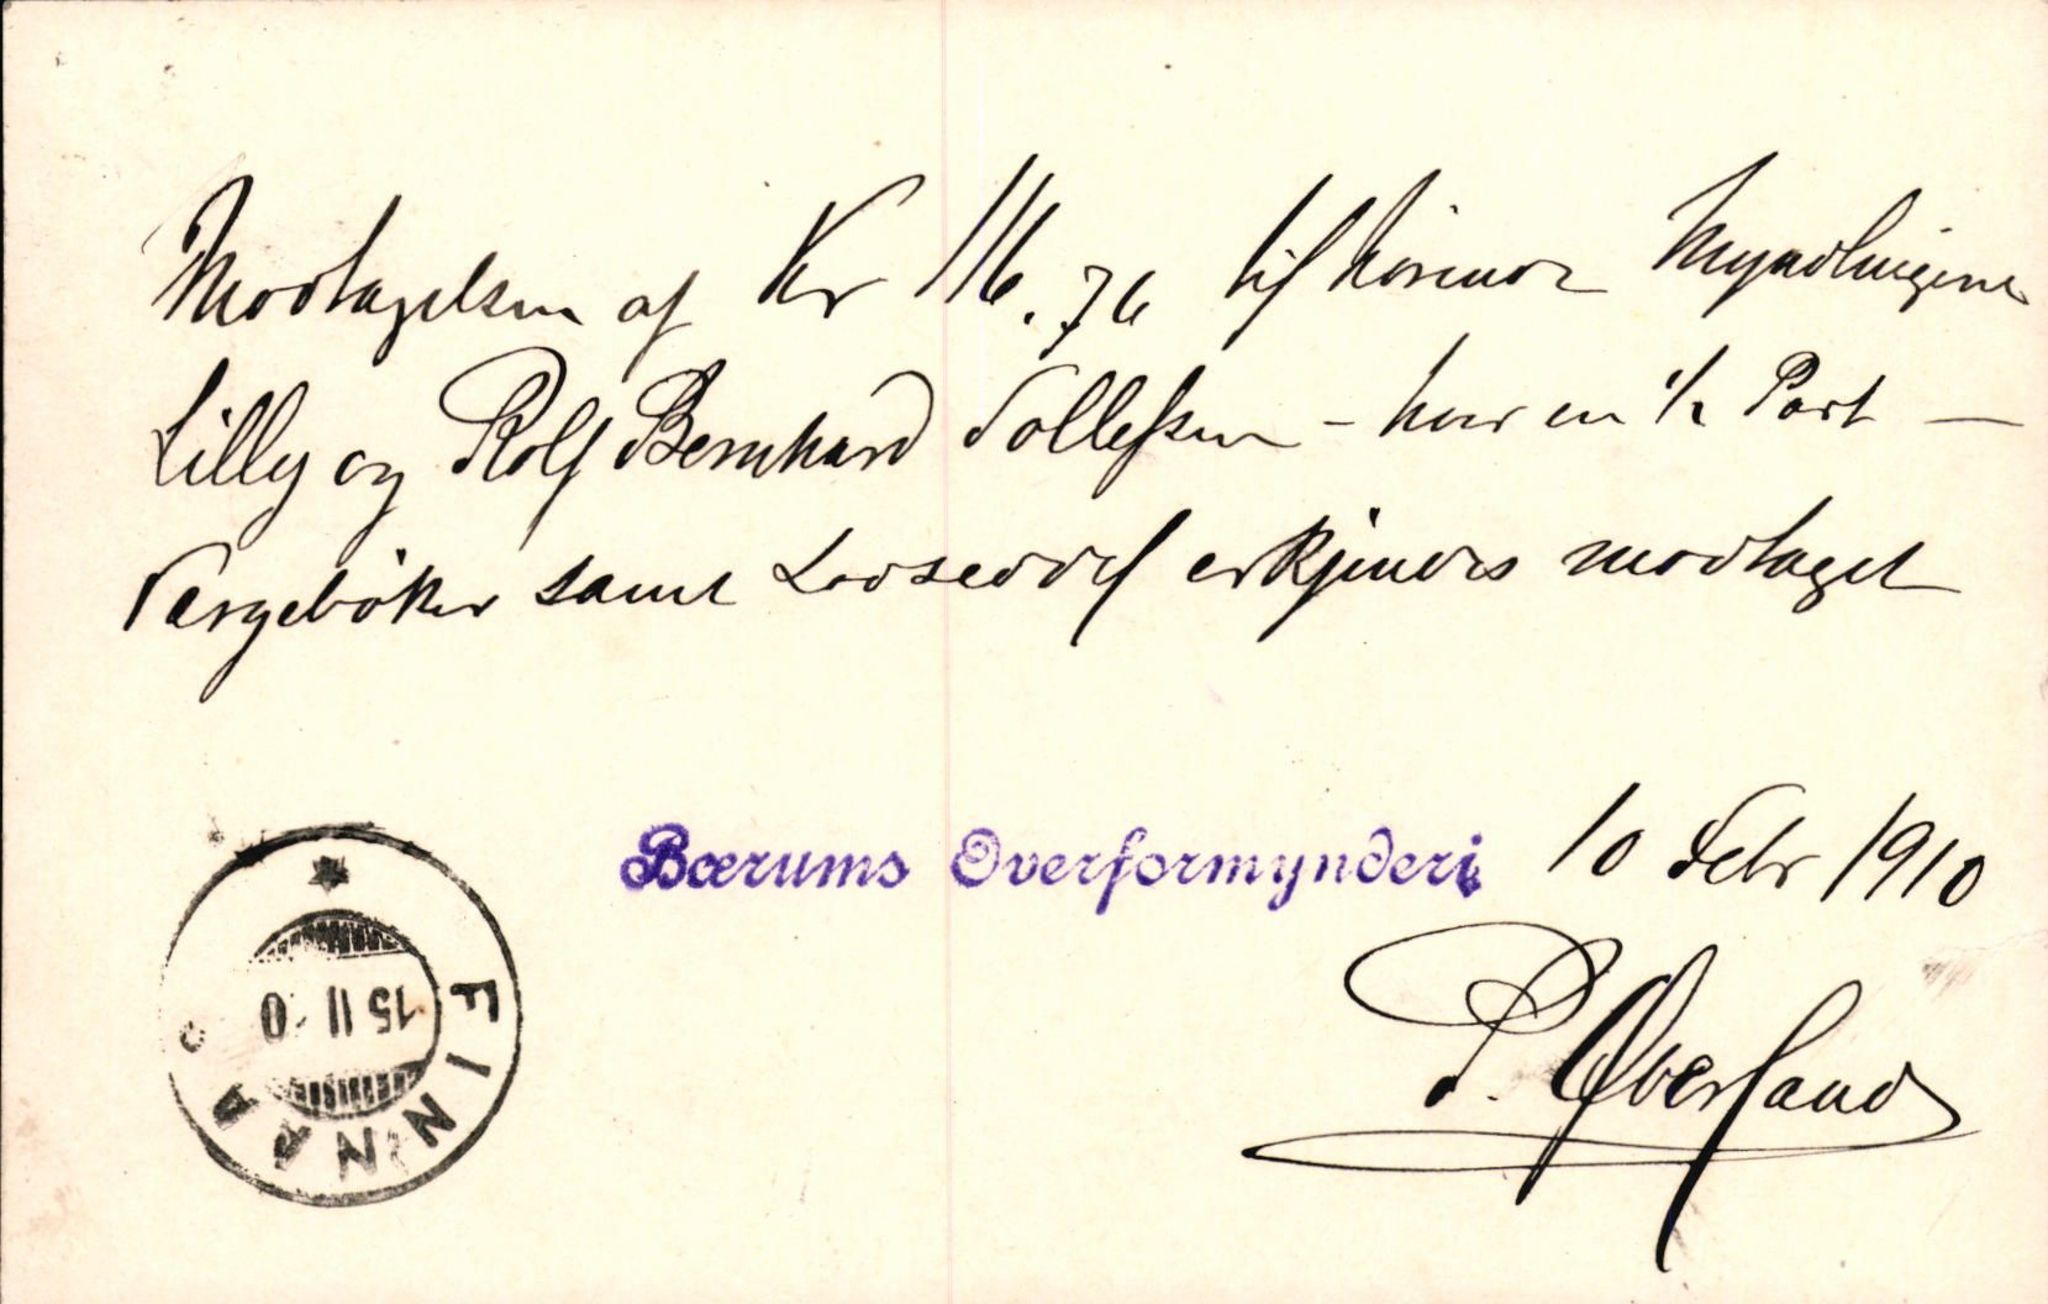 Modtagelsen af Kr 116.76 tilhørende Myndlingene
Lilly og Rolf Bernhard Tollefsen - hver en 1/2 Part —
Værgebøker samt Lodseddel erkjendes modtaget
Bærums Overformynderi 10 Febr 1910
P. Øverland
FINNAA
15 II 0